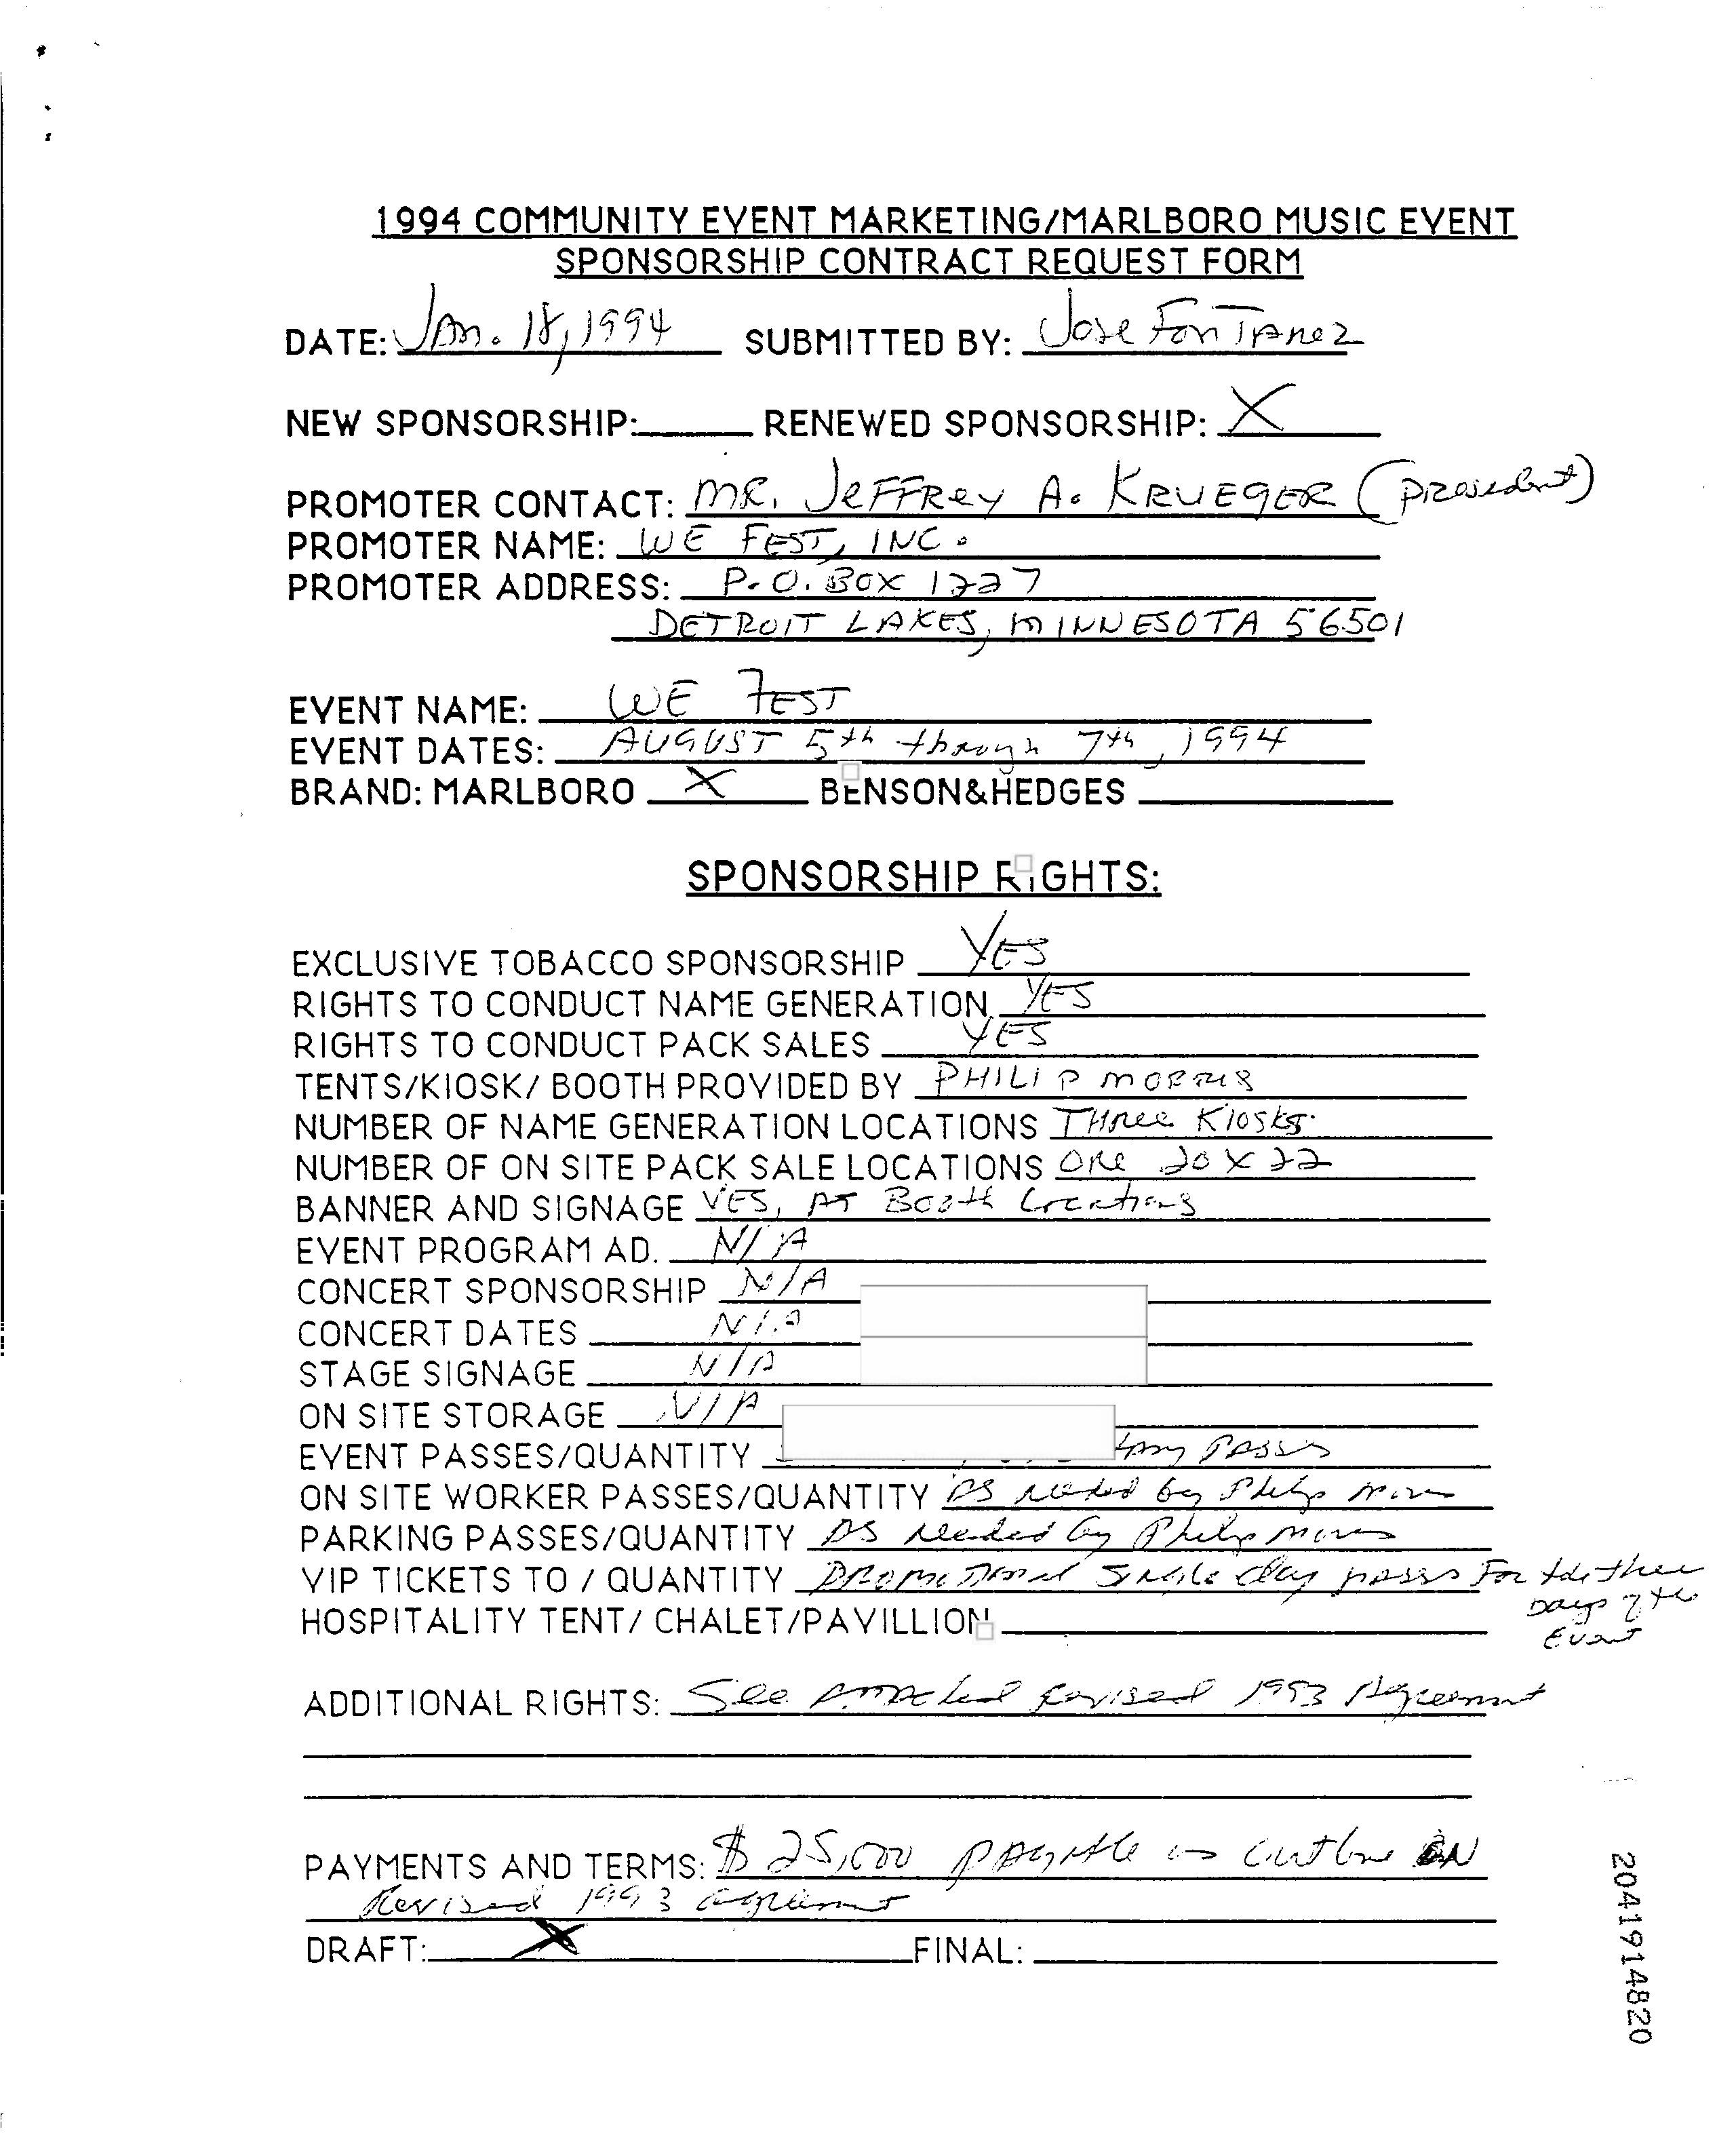 1994 COMMUNITY EVENT MARKETING/MARLBORO MUSIC EVENT
SPONSORSHIP CONTRACT REQUEST FORM
DATE: Jan. 18, 1994 SUBMITTED BY: Jose Fontanez
NEW SPONSORSHIP: RENEWED SPONSORSHIP: X
PROMOTER CONTACT: MR. JEFFREY A. KRUEGER (president)
PROMOTER NAME: WE FEST, INC.
PROMOTER ADDRESS: P.O. BOX 1227
DETROIT LAKES, MINNESOTA 56501
EVENT NAME: WE FEST
EVENT DATES: AUGUST 5th through 7th, 1994
BRAND: MARLBORO X BENSON&HEDGES
SPONSORSHIP RIGHTS:
EXCLUSIVE TOBACCO SPONSORSHIP YES
RIGHTS TO CONDUCT NAME GENERATION YES
RIGHTS TO CONDUCT PACK SALES YES
TENTS/KIOSK/ BOOTH PROVIDED BY PHILIP MORRIS
NUMBER OF NAME GENERATION LOCATIONS THREE KIOSKS
NUMBER OF ON SITE PACK SALE LOCATIONS ONE 20 X 22
BANNER AND SIGNAGE YES, AT Booth Locations
EVENT PROGRAM AD. N/A
CONCERT SPONSORSHIP N/A
CONCERT DATES N/A
STAGE SIGNAGE N/A
ON SITE STORAGE N/A
EVENT PASSES/QUANTITY Passes
ON SITE WORKER PASSES/QUANTITY AS needed by Philip Morris
PARKING PASSES/QUANTITY AS needed by Philip Morris
VIP TICKETS TO / QUANTITY Promotional Single day passes For the three
Days of the
Event
HOSPITALITY TENT/ CHALET/PAVILLION
ADDITIONAL RIGHTS: See attached revised 1993 Agreement
PAYMENTS AND TERMS: $ 25,000 payable as outline ON
Revised 1993 agreement
DRAFT: X FINAL:
2041914820